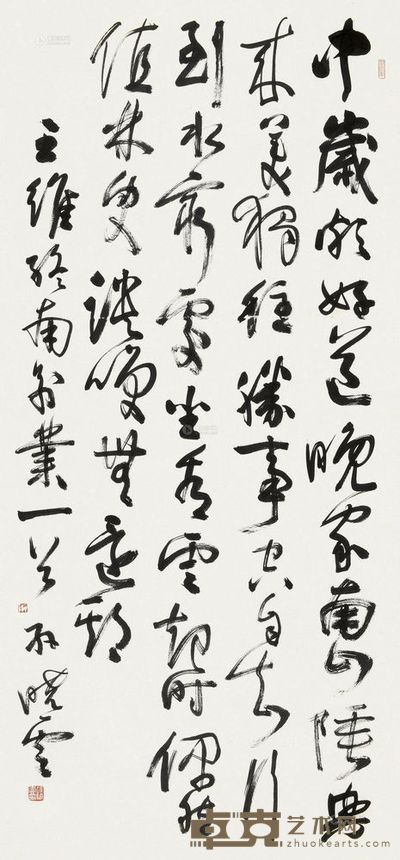 中歲頗好道晚家南山陲興
來每獨往勝事空自知行
到水窮處坐看雲起時偶然
值林叟談笑無還期
王維終南別業一首 孫曉雲
卓克艺术网
zhuokearts.com